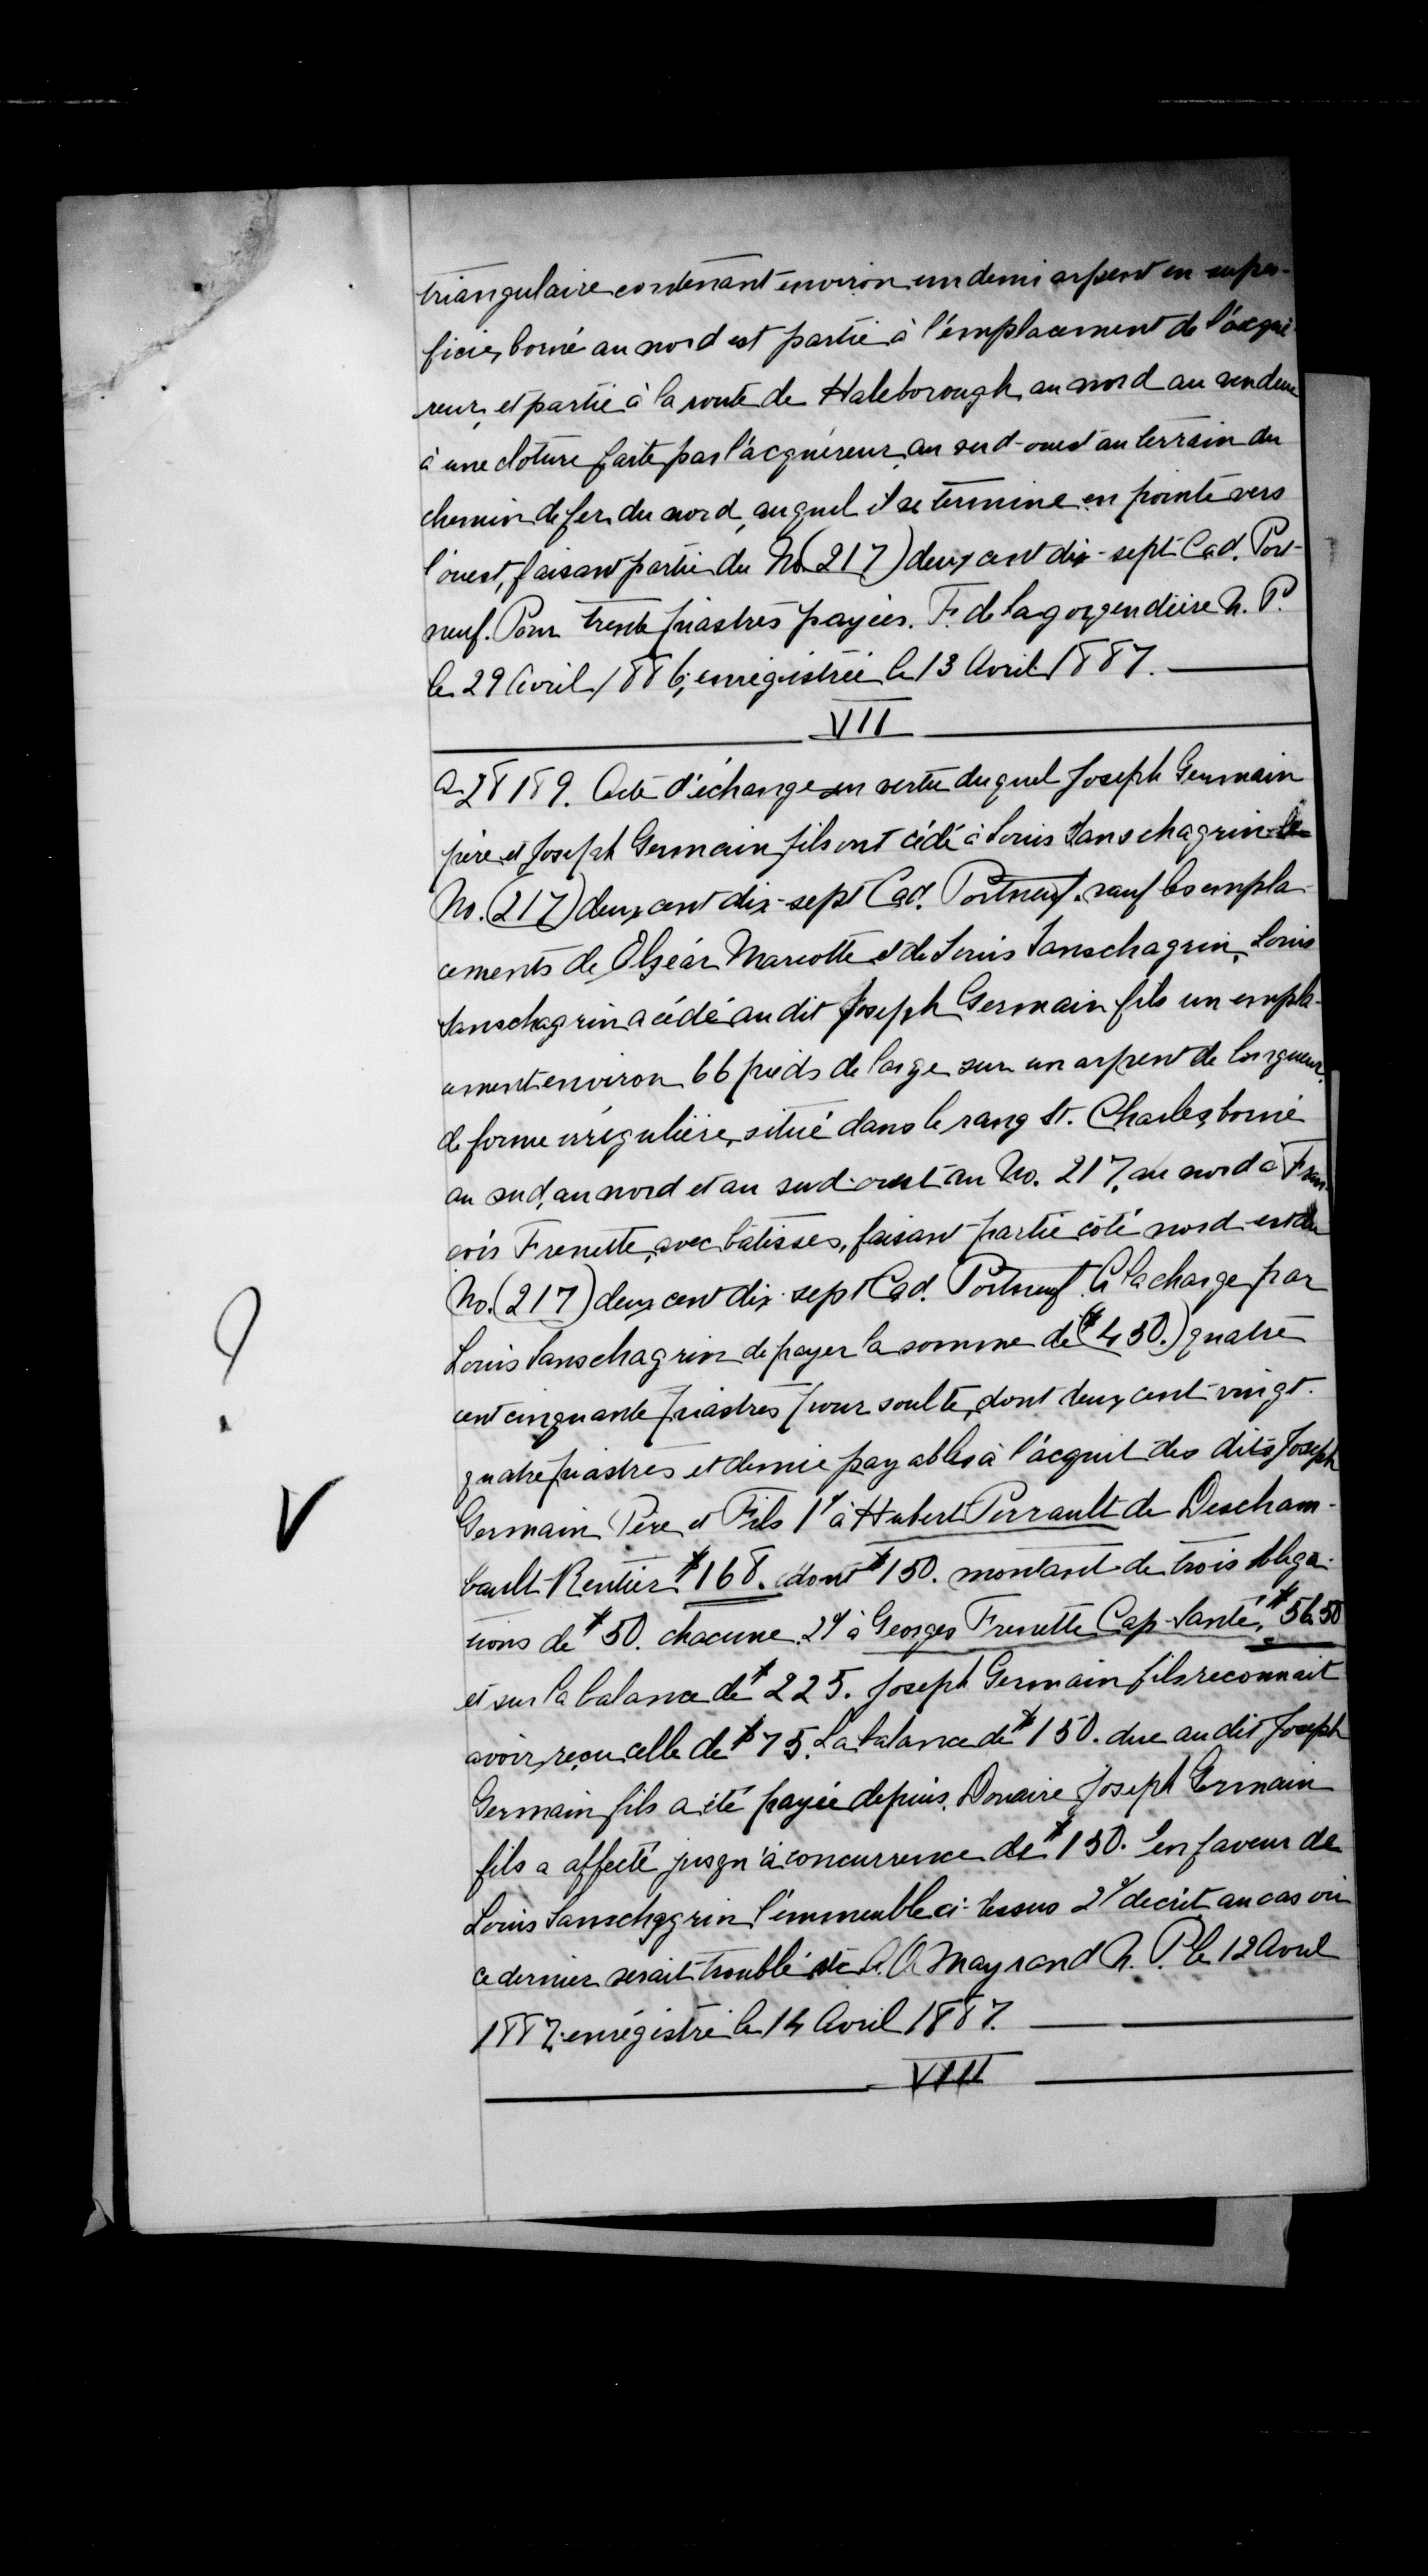 triangulaire contenant environ un demi arpent en super-
ficie, borné au nord est partie à l'emplacement de l'acqué-
reur, et partie à la route de Haleborough, au nord au vendeur
à une cloture faite par l'acquéreur, au sud-ouest au terrain du
chemin de fer du nord, auquel il se termine en pointe vers
l'ouest, faisant partie du No. (217) deux cent dix-sept Cad. Port-
neuf. Pour trente piastres payées. F. de Lagorgendière N. P.
le 29 Avril 1886; enrégistrée le 13 Avril 1887.
VII
28189. Acte d'échange en vertu duquel Joseph Germain
père et Joseph Germain fils ont cédé à Louis Sanschagrin le
No. (217) deux cent dix-sept Cad. Portneuf. sauf les empla-
cements de Elzéar Marcotte et de Louis Sanschagrin, Louis
Sanschagrin a cédé au dit Joseph Germain fils un empla-
cement environ 66 pieds de large sur un arpent de longueur,
de forme irrégulière, situé dans le rang St. Charles, borné
au sud, au nord et au sud-ouest au No. 217, au nord à Fran-
çois Frenette, avec bâtisses, faisant partie côté nord-est du
No. (217) deux cent dix-sept Cad. Portneuf. A la charge par
Louis Sanschagrin de payer la somme de ($450.) quatre
cent cinquante piastres pour soulte, dont deux cent vingt-
quatre piastres et demie payables à l'acquit des dits Joseph
Germain Père et Fils 1° à Hubert Perrault de Descham-
bault Rentier $168. dont $150. montant de trois obliga-
tions de $50. chacune. 2° à Georges Frenette Cap-Santé, $56.50
et sur la balance de $225. Joseph Germain fils reconnait
avoir reçu celle de $75. La balance de $150. due au dit Joseph
Germain fils a été payée depuis. Douaire Joseph Germain
fils a affecté jusqu'à concurrence de $150. en faveur de
Louis Sanschagrin l'immeuble ci-dessus 2° décrit au cas où
ce dernier serait troublé etc A. A. Mayrand N. P. le 12 Avril
1887, enrégistré le 14 Avril 1887.
VIII
?
V